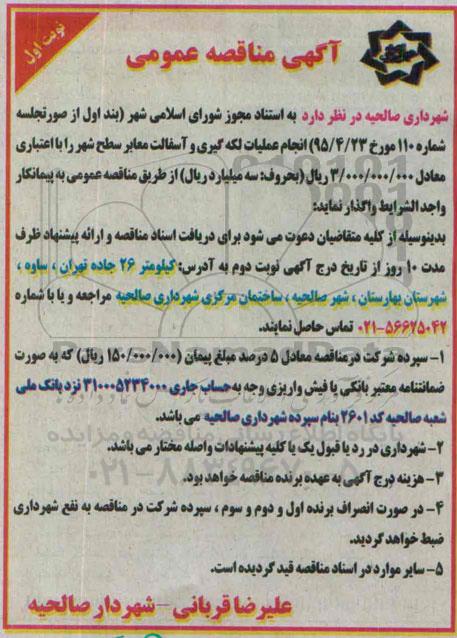 نوبت اول
آگهی مناقصه عمومی
شهرداری صالحیه در نظر دارد به استناد مجوز شورای اسلامی شهر (بند اول از صورتجلسه
شماره ۱۱۰ مورخ ۹۵/۴/۲۳) انجام عملیات لکه گیری و آسفالت معابر سطح شهر را با اعتباری
معادل ۳/۰۰۰/۰۰۰/۰۰۰ ریال (بحروف: سه میلیارد ریال) از طریق مناقصه عمومی به پیمانکار
واجد الشرایط واگذار نماید:
بدینوسیله از کلیه متقاضیان دعوت می شود برای دریافت اسناد مناقصه و ارائه پیشنهاد ظرف
مدت ۱۰ روز از تاریخ درج آگهی نوبت دوم به آدرس: کیلومتر ۲۶ جاده تهران ، ساوه ،
شهرستان بهارستان ، شهر صالحیه ، ساختمان مرکزی شهرداری صالحیه مراجعه و یا با شماره
۰۲۱-۵۶۶۷۵۰۴۲ تماس حاصل نمایند.
۱- سپرده شرکت در مناقصه معادل ۵ درصد مبلغ پیمان (۱۵۰/۰۰۰/۰۰۰ ریال) که به صورت
ضمانتنامه معتبر بانکی یا فیش واریزی وجه به حساب جاری ۳۱۰۰۰۵۲۳۴۰۰۰ نزد بانک ملی
شعبه صالحیه کد ۲۶۰۱ بنام سپرده شهرداری صالحیه می باشد.
۲- شهرداری در رد یا قبول یک یا کلیه پیشنهادات واصله مختار می باشد.
۳- هزینه درج آگهی به عهده برنده مناقصه خواهد بود.
۴- در صورت انصراف برنده اول و دوم و سوم ، سپرده شرکت در مناقصه به نفع شهرداری
ضبط خواهد گردید.
۵- سایر موارد در اسناد مناقصه قید گردیده است.
علیرضا قربانی - شهردار صالحیه